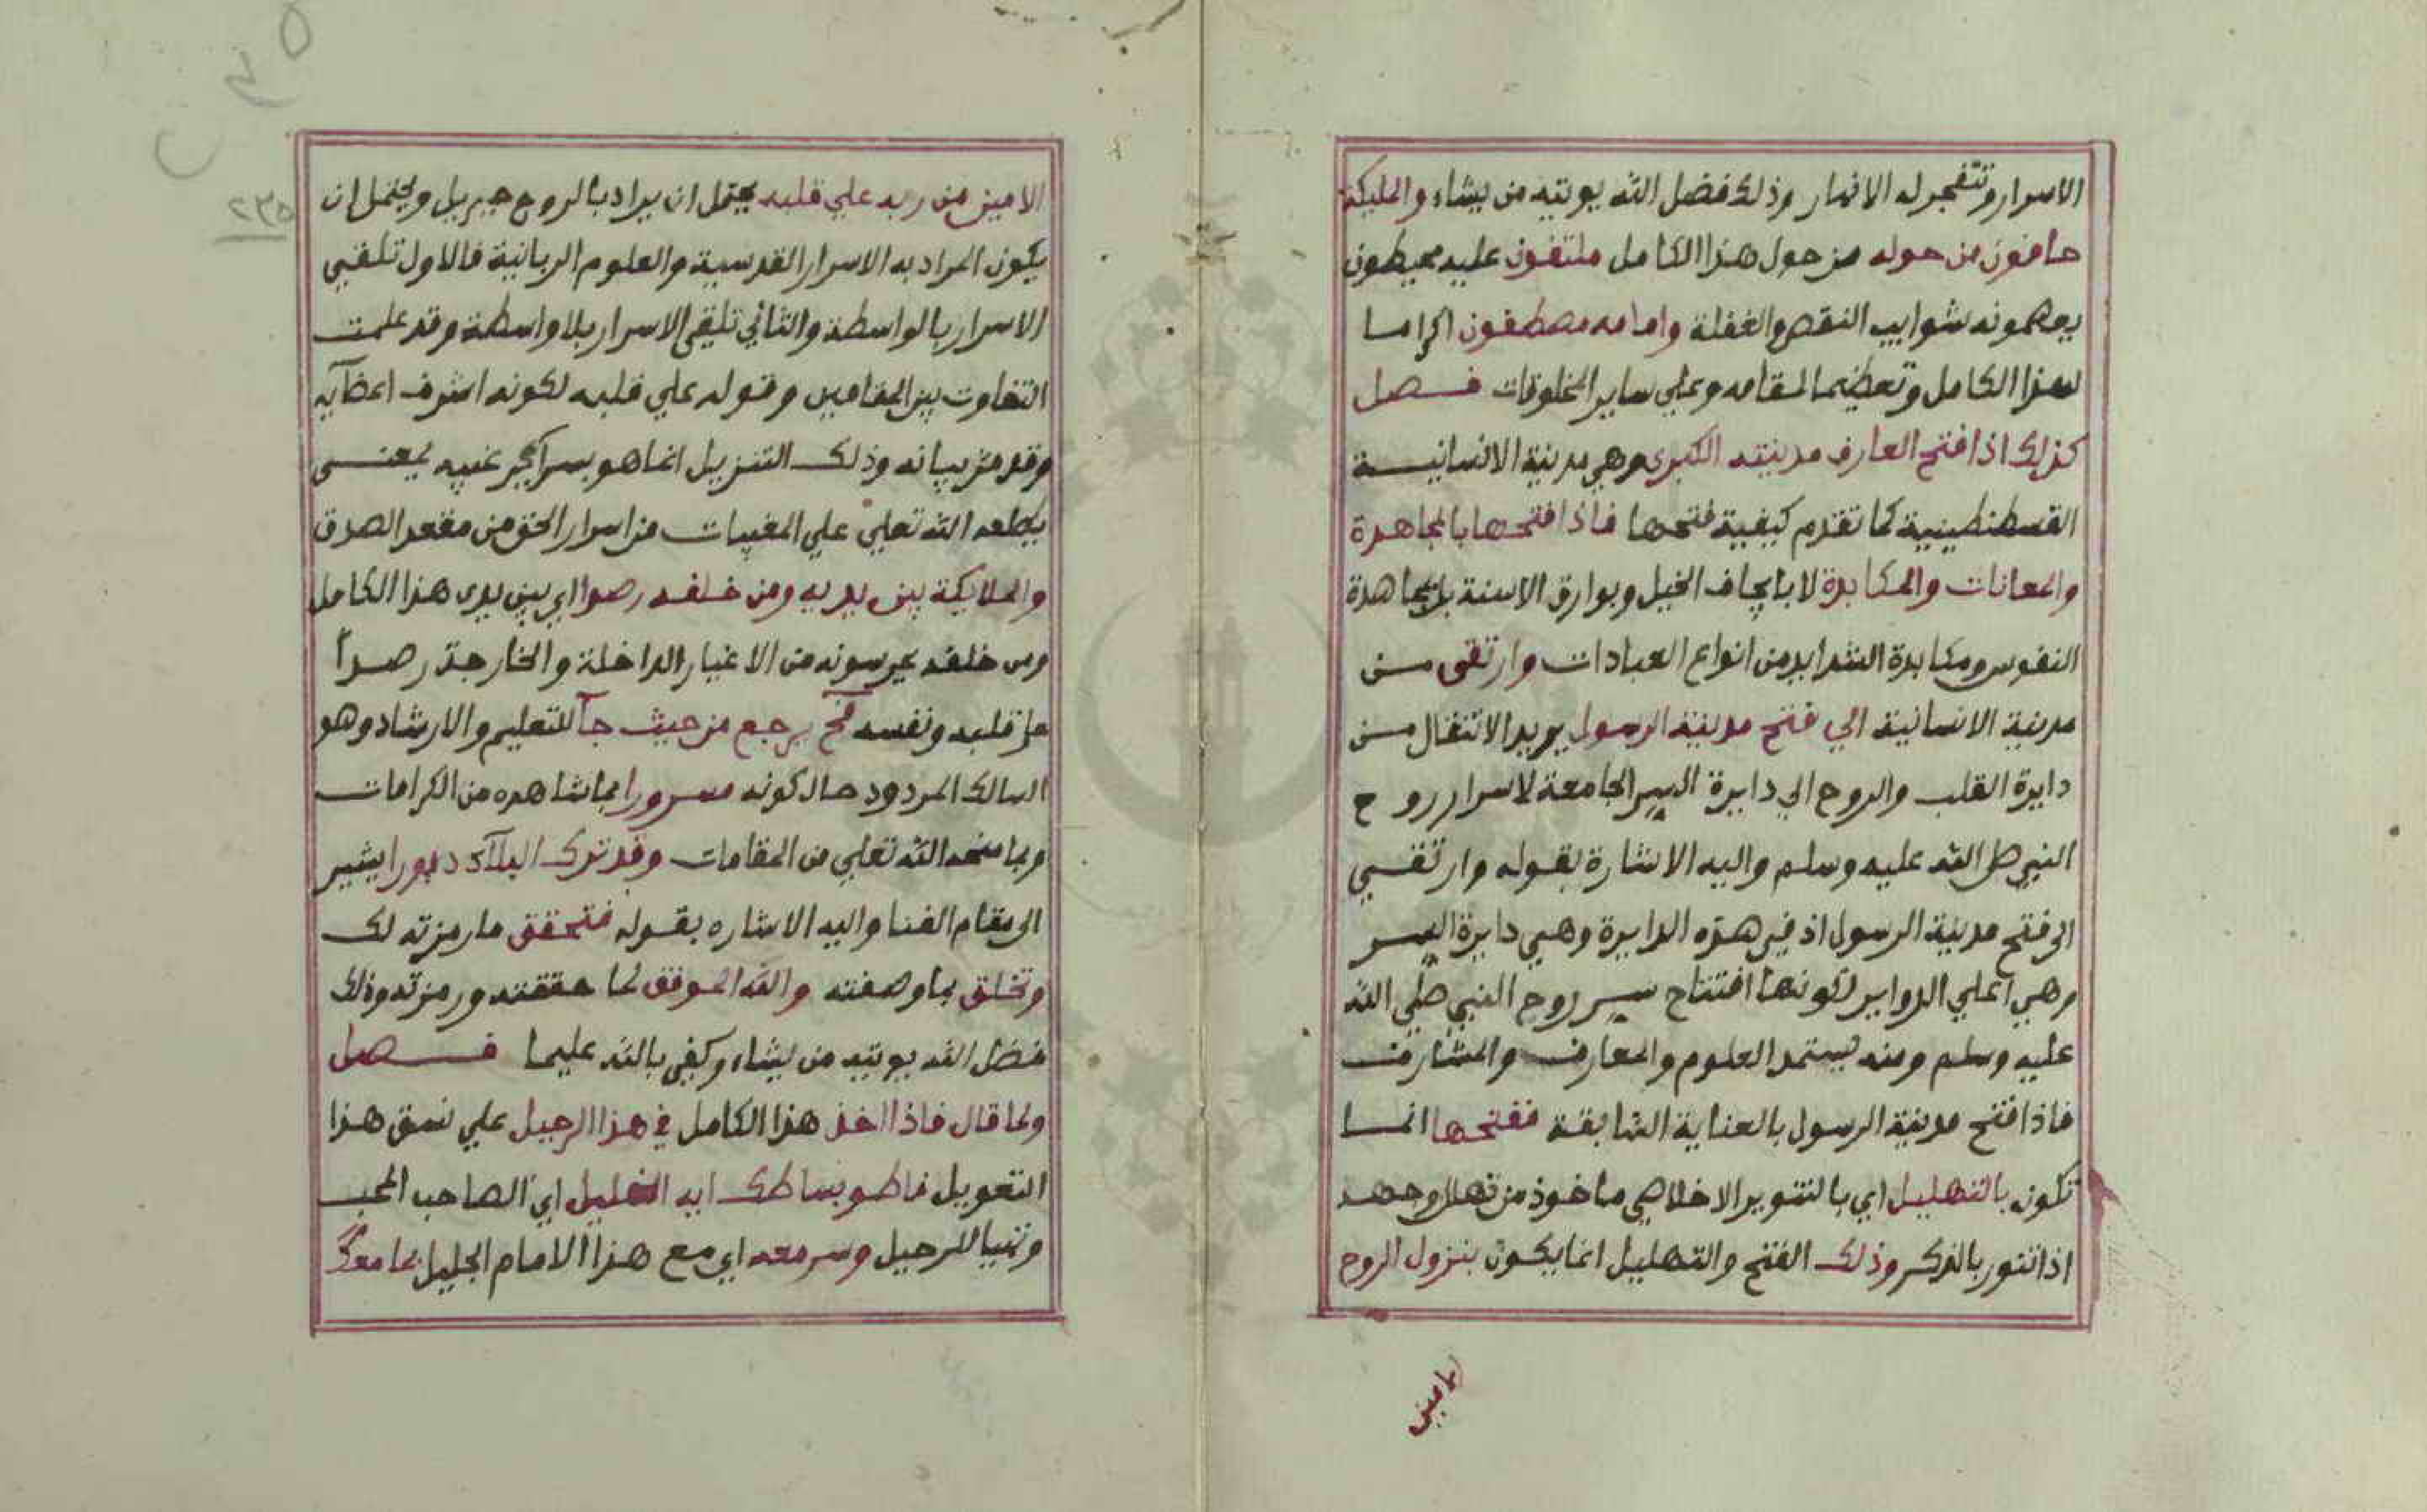 الاسرار وتتفجر له الانهار وذلك فضل الله يوتيه من يشاء والمليكة
حافون من حوله من حول هذا الكامل ملتفون عليه محيطون
شوايب النقص والغفلة وامامه مصطفون اكراما
لهذا الكامل وتعظيما لمقامه وعلي ساير المخلوقات فصل
كذلك اذا فتح العارف مدينته الكبرى وهي مدينة الانسانية
القسطنطينية كما تقدم كيفية فتحها فاذا افتحها بالمجاهدة
والمعانات والمكابدة لا بايجاف الخيل وبوارق الاسنة بل بمجاهدة
النفوس ومكابدة الشدايد من انواع العبادات وارتقى من
مدينة الانسانية الي فتح مدينة الرسول يريد الانتقال من
دايرة القلب والروح الي دايرة السر الجامعة لاسرار روح
النبي صلى الله عليه وسلم واليه الاشارة بقوله وارتقي
الى فتح مدينة الرسول اذ في هذه الدايرة وهي دايرة السر
وهي اعلي الدواير لكونها افتتاح سر روح النبي صلي الله
عليه وسلم ومنه يستمد العلوم والمعارف والمشارف
فاذا فتح مدينة الرسول بالعناية السابقة ففتحها انما
تكون بالتهليل اي بالتنوير الاخلاصي ماخوذ من تهلل وجهه
اذا تنور بالذكر وذلك الفتح والتهليل انما يكون بنزول الروح
الامين
الامين من ربه علي قلبه يحتمل ان يراد بالروح جبريل ويحتمل ان
يكون المراد به الاسرار القدسية والعلوم الربانية فالاول تلقي
الاسرار بالواسطة والثاني تلقي الاسرار بلا واسطة وقد علمت
التفاوت بين المقامين وقوله علي قلبه لكونه اشرف اعضآيه
وقد مر بيانه وذلك التنزيل انما هو بسراير غيبه يعنى
يطلعه الله تعلي علي المغيبات من اسرار الحق من مقعد الصدق
والملايكة بين يديه ومن خلفه رصدا اي بين يدى هذا الكامل
ومن خلفه يحرسونه من الاغيار الداخلة والخارجة رصداً
عن قلبه ونفسه ثم يرجع من حيث جآ للتعليم والارشاد وهو
السالك المردود حال كونه مسرورا بما شاهده من الكرامات
وبما منحه الله تعلي من المقامات وقد ترك البلآد دبورا يشير
الى مقام الفنا واليه الاشاره بقوله فتحقق ما رمزته لك
وتخلق بما وصفته والله الموفق لما حققته ورمزته وذلك
فضل الله يوتيه من يشاء وكفى بالله عليما فصل
ولما قال فاذا اخذ هذا الكامل في هذا الرحيل علي نسق هذا
التعويل فاطو بساطك ايه الخليل اي الصاحب المحب
وتهيا للرحيل وسر معه اي مع هذا الامام الجليل بما معك
٢٣٥